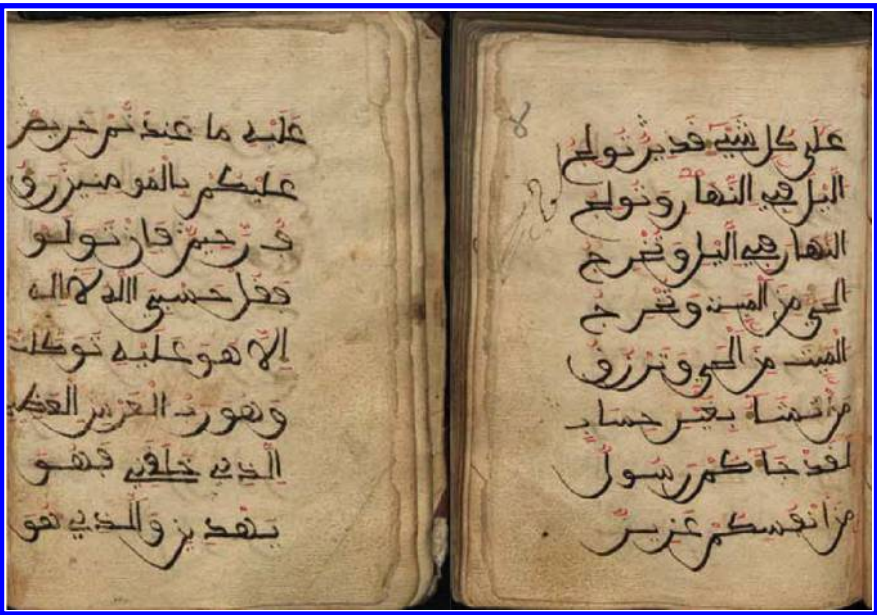 على كل شيء قدير تولج
اليل في النهار وتولج
النهار في اليل وتخرج
الحي من الميت وتخرج
الميت من الحي وترزق
من تشا بغير حساب
لقد جاكم رسول
من انفسكم عزيز
عليه ما عند تم حريص
عليكم بالمومنين رو
ف رحيم فان تولو
فقل حسبي الله لا اله
الا هو عليه توكلت
وهو رب العزيز العظيم
الذي خلقني فهو
يهدين والذي هو